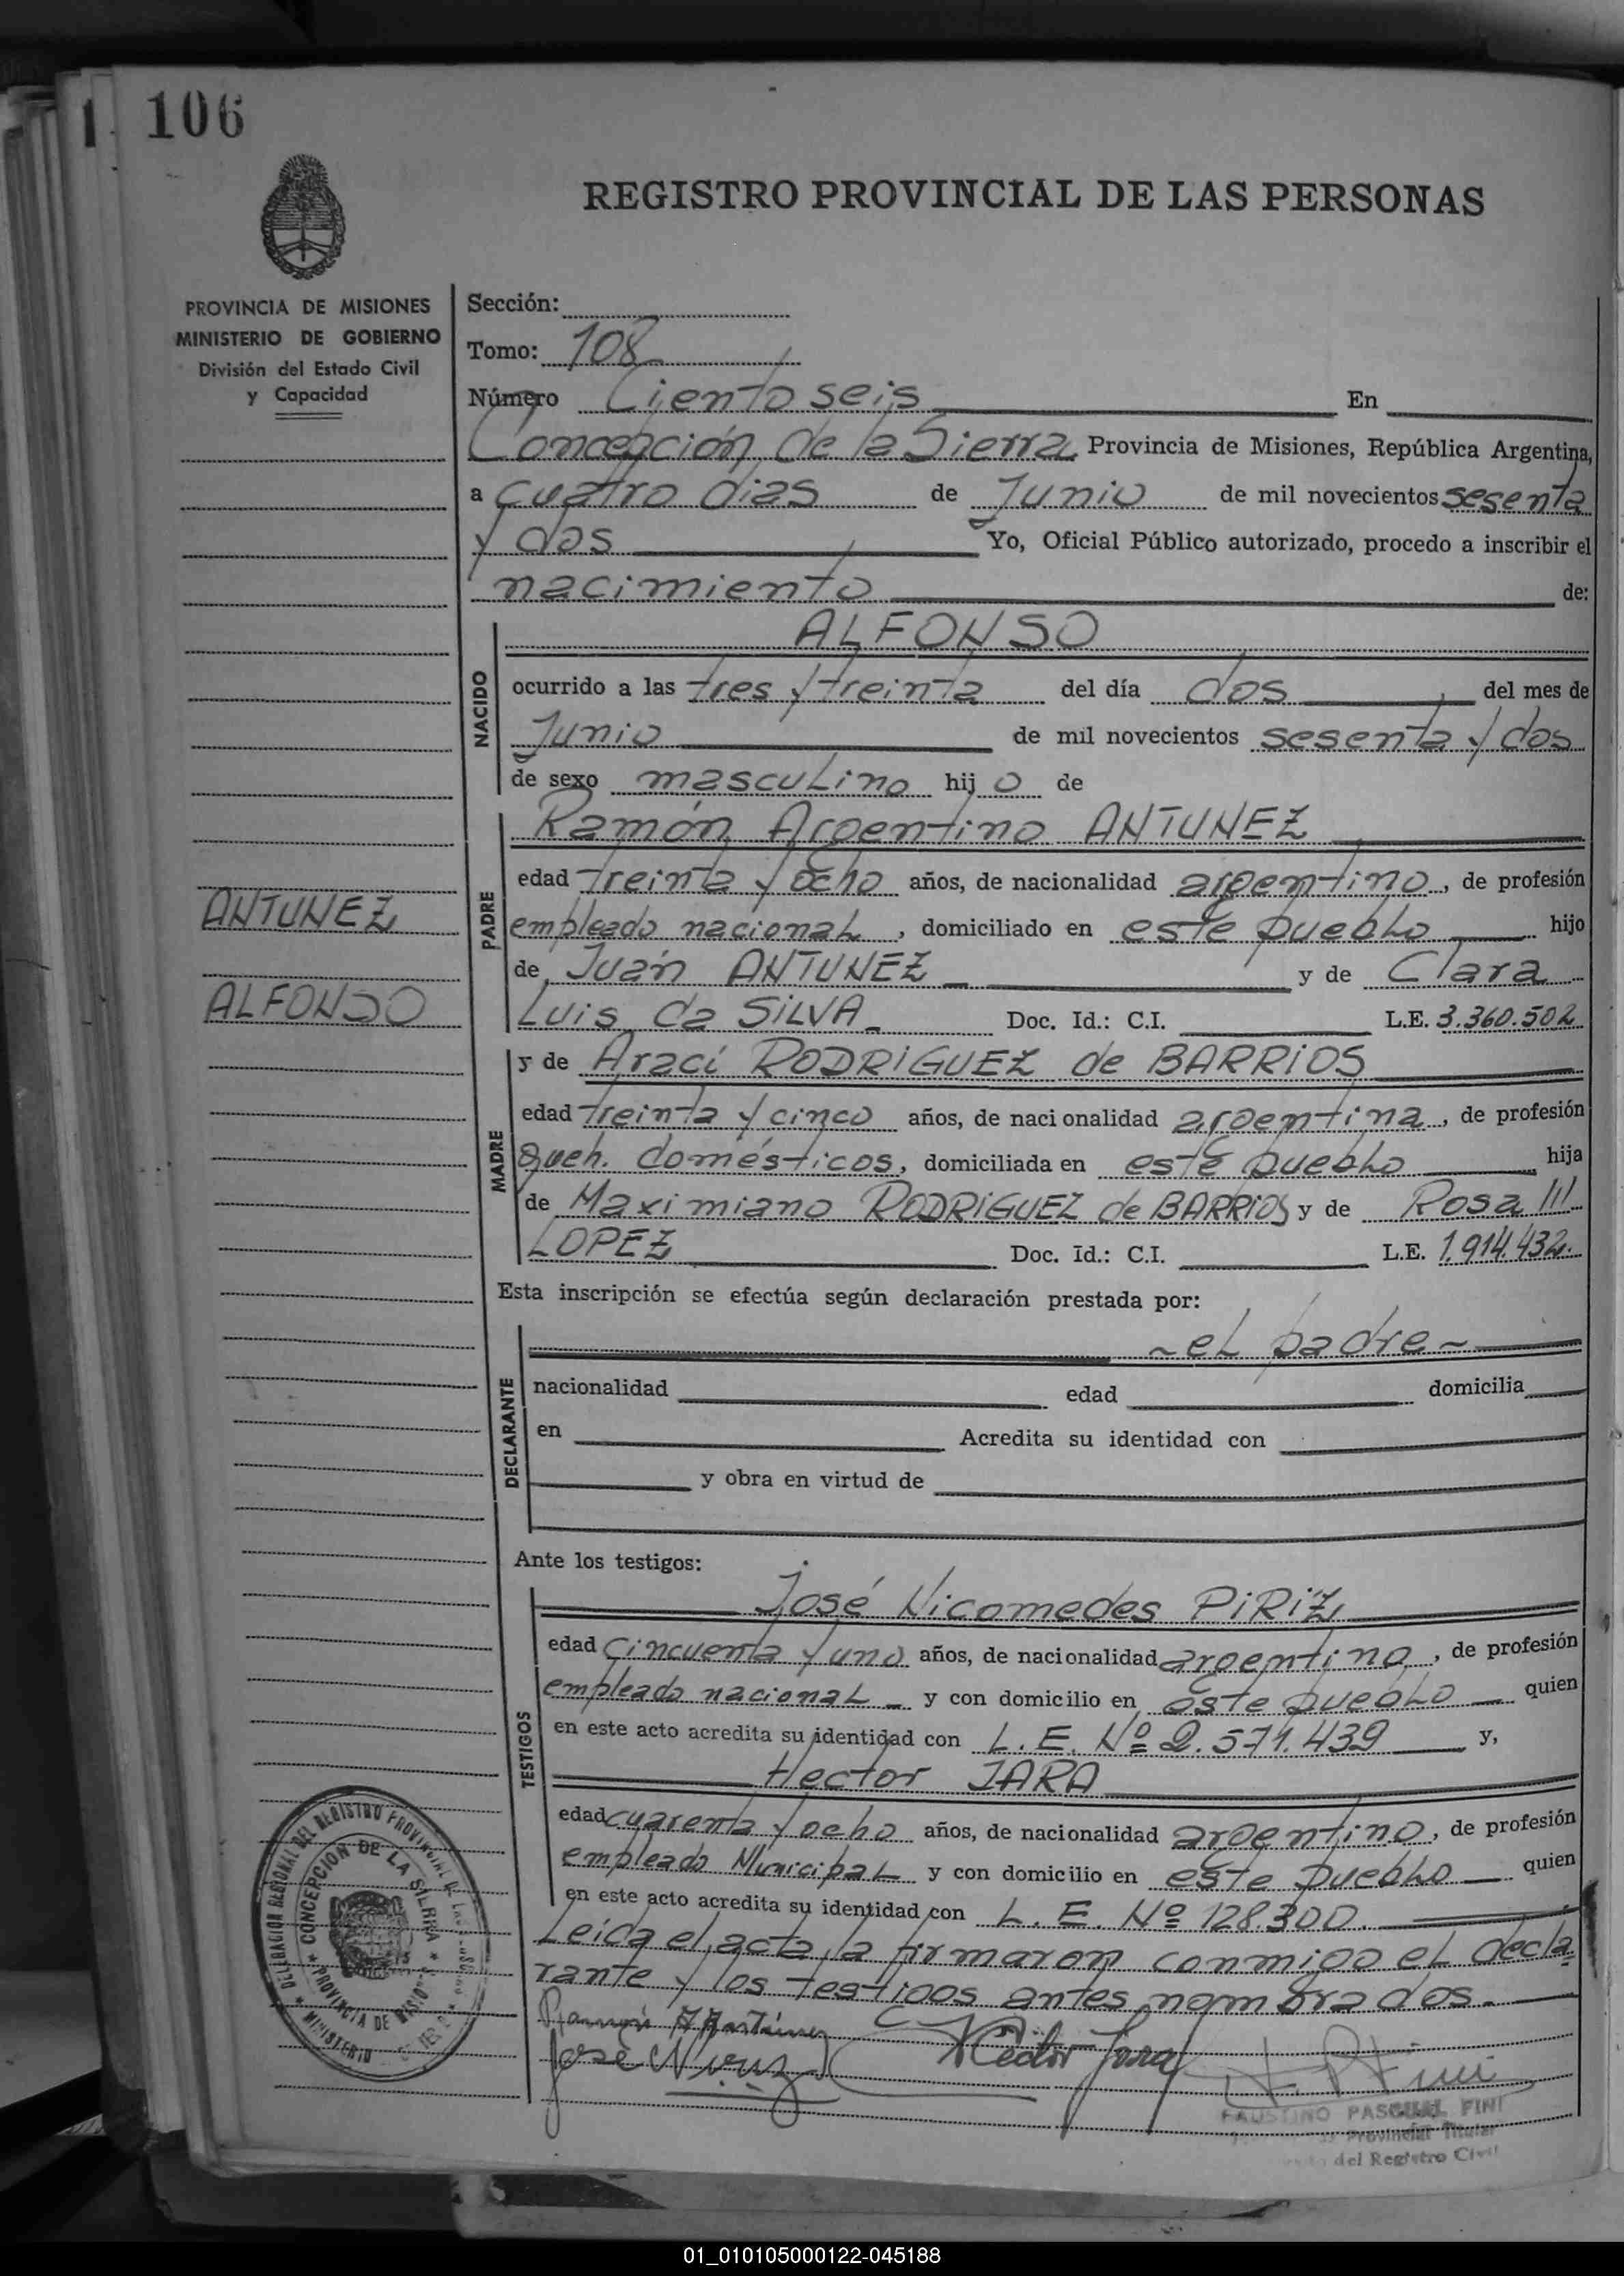 106
REGISTRO PROVINCIAL DE LAS PERSONAS
PROVINCIA DE MISIONES
MINISTERIO DE GOBIERNO
División del Estado Civil
y Capacidad
Sección:
Tomo: 108
Número Ciento seis En
Concepción de la Sierra Provincia de Misiones, República Argentina,
a cuatro dias de Junio de mil novecientos sesenta
y dos Yo, Oficial Público autorizado, procedo a inscribir el
nacimiento de:
NACIDO
ALFONSO
ocurrido a las tres y treinta del día dos del mes de
Junio de mil novecientos sesenta y dos
de sexo masculino hijo de
PADRE
Ramón Argentino ANTUNEZ
edad treinta y ocho años, de nacionalidad argentino, de profesión
ANTUNEZ
empleado nacional, domiciliado en este pueblo hijo
de Juán ANTUNEZ y de Clara
ALFONSO
Luis da SILVA Doc. Id.: C.I. L.E. 3.360.502
MADRE
y de Araci RODRIGUEZ de BARRIOS
edad treinta y cinco años, de nacionalidad argentina, de profesión
queh. domésticos, domiciliada en este pueblo hija
de Maximiano RODRIGUEZ de BARRIOS y de Rosa
LOPEZ Doc. Id.: C.I. L.E. 1.914.432.
Esta inscripción se efectúa según declaración prestada por:
DECLARANTE
~el padre~
nacionalidad edad domicilia
en Acredita su identidad con
y obra en virtud de
Ante los testigos:
TESTIGOS
José Nicomedes PIRIZ
edad cincuenta y uno años, de nacionalidad argentino, de profesión
empleado nacional y con domicilio en este pueblo quien
en este acto acredita su identidad con L. E. Nº 2.571.439 y,
Hector JARA
edad cuarenta y ocho años, de nacionalidad argentino, de profesión
empleado Municipal y con domicilio en este pueblo quien
en este acto acredita su identidad con L. E. Nº 128.300.
Leida el acta, la firmaron conmigo el decla-
rante y los testigos antes nombrados.
Hector Jara
FAUSTINO PASCUAL FINI
Provincial Titular
del Registro Civil
DELEGACION REGIONAL DEL REGISTRO PROVINCIAL DE LAS
CONCEPCION DE LA SIERRA
PROVINCIA DE MISIONES
MINISTERIO
01_010105000122-045188